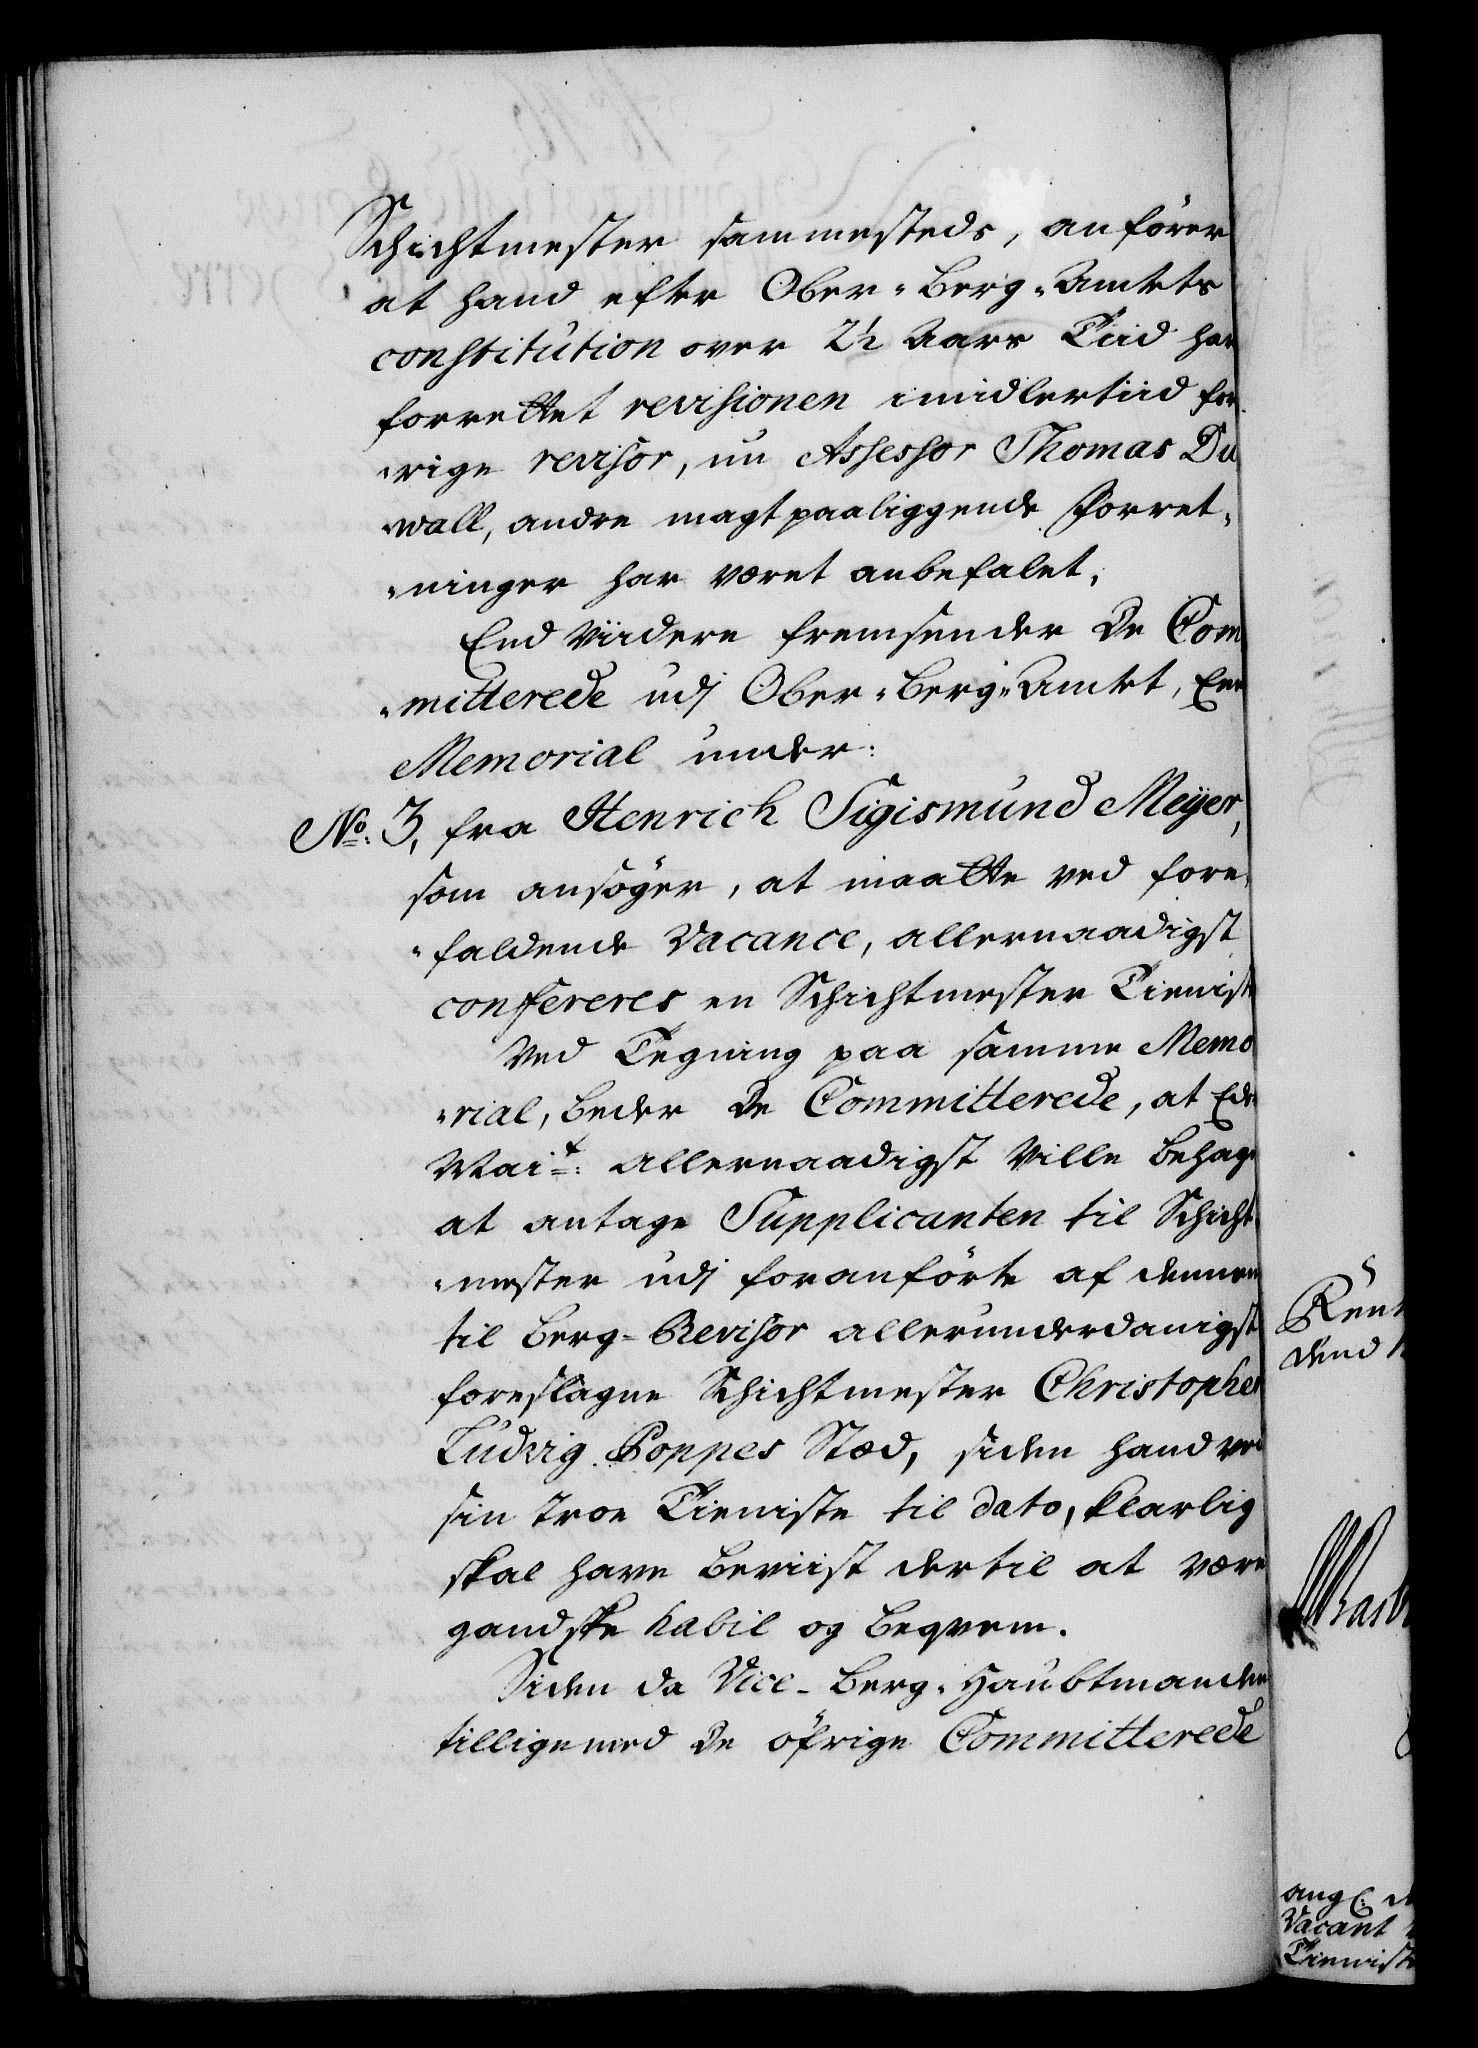 Schichtmester sammesteds, anförer
at hand efter Ober-Berg-Amtets
constitution over 2½ Aars Tiid har
forrettet revisionen imidlertiid for-
-rige revisor, nu Assessor Thomas Du
-wall, andre magtpaaliggende Forret-
-ninger har været anbefalet.
End viidere fremsender De Com
-mitterede udj Ober-Berg-Amtet, Een
Memorial under:
No. 3, fra Henrich Sigismund Meyer,
som ansöger, at maatte ved fore-
-faldende Vacance, allernaadigst
confereres en Schichtmester Tieniste
Ved Tegning paa samme Memo
-rial, beder De Committerede, at Eder
Mait: allernaadigst Ville behage
at antage Supplicanten til Schicht-
-mester udj foranförte af dennem
til Berg-Revisor allerunderdanigst
foreslagne Schichtmester Christopher
Ludvig Poppes Stæd, siden hand ved
sin troe Tieniste til dato, klarlig
skal have beviist dertil at være
gandske habil og beqvem.
Siden da Vice-Berg-Haubtmanden
tilligemed De öfrige Committerede
Rent
dend
ang:
Vacant
Tieniste